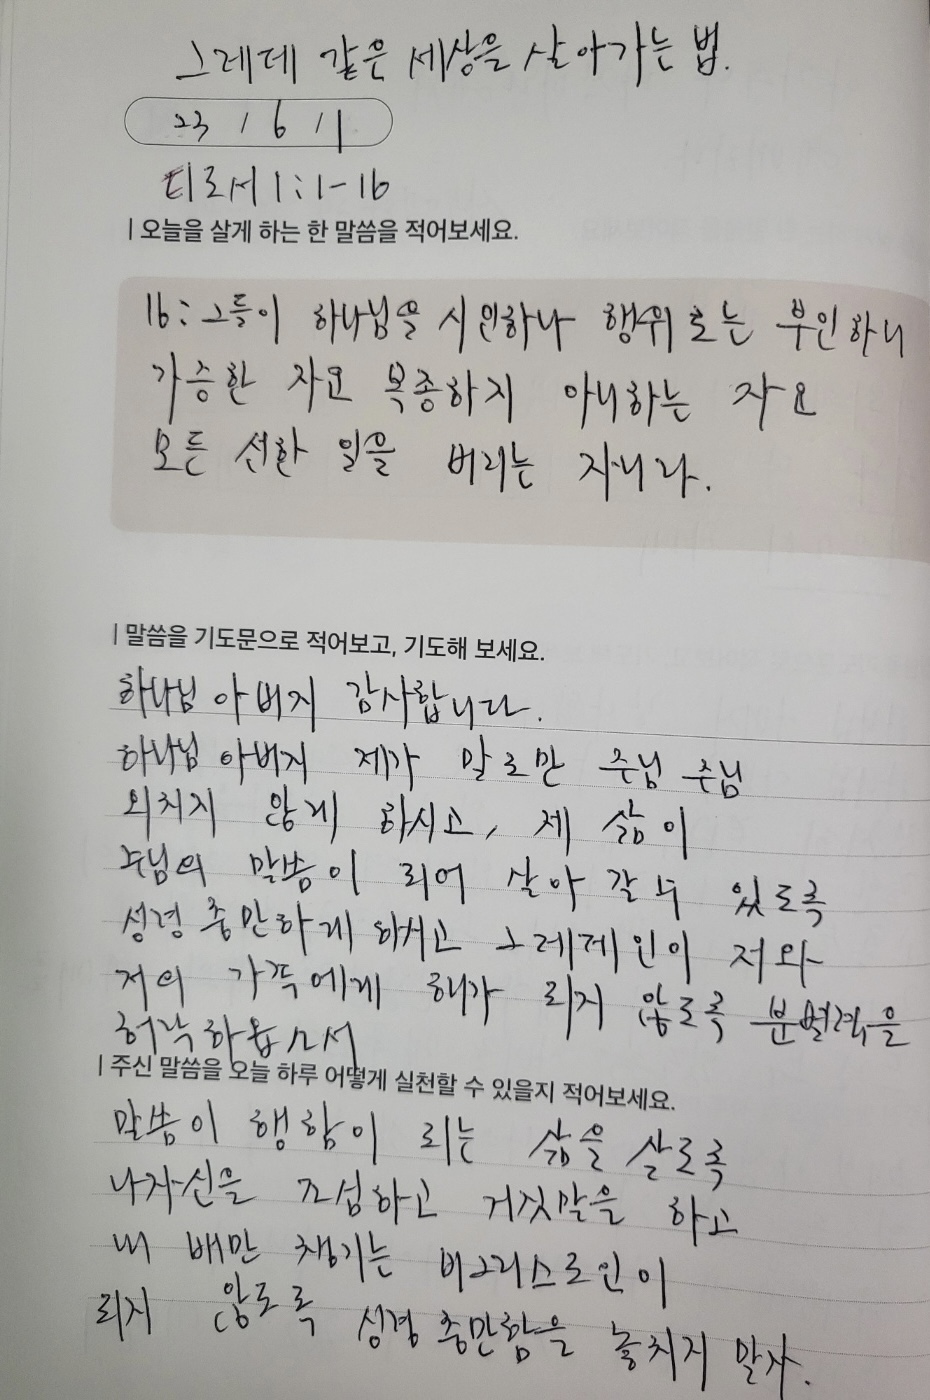 그레데 같은 세상을 살아가는 법.
23 / 6 / 1
디도서 1:1-16
| 오늘을 살게 하는 한 말씀을 적어보세요.
16: 그들이 하나님을 시인하나 행위로는 부인하니
가증한 자요 복종하지 아니하는 자요
모든 선한 일을 버리는 자니라.
| 말씀을 기도문으로 적어보고, 기도해 보세요.
하나님 아버지 감사합니다.
하나님 아버지 제가 말로만 주님 주님
외치지 않게 하시고, 제 삶이
주님의 말씀이 되어 살아 갈 수 있도록
성령 충만하게 하시고 그레데인이 저와
저의 가족에게 해가 되지 않도록 분별력을
허락하옵소서
| 주신 말씀을 오늘 하루 어떻게 실천할 수 있을지 적어보세요.
말씀이 행함이 되는 삶을 살도록
나자신을 조심하고 거짓말을 하고
내 배만 챙기는 비그리스도인이
되지 않도록 성령 충만함을 놓치지 말자.